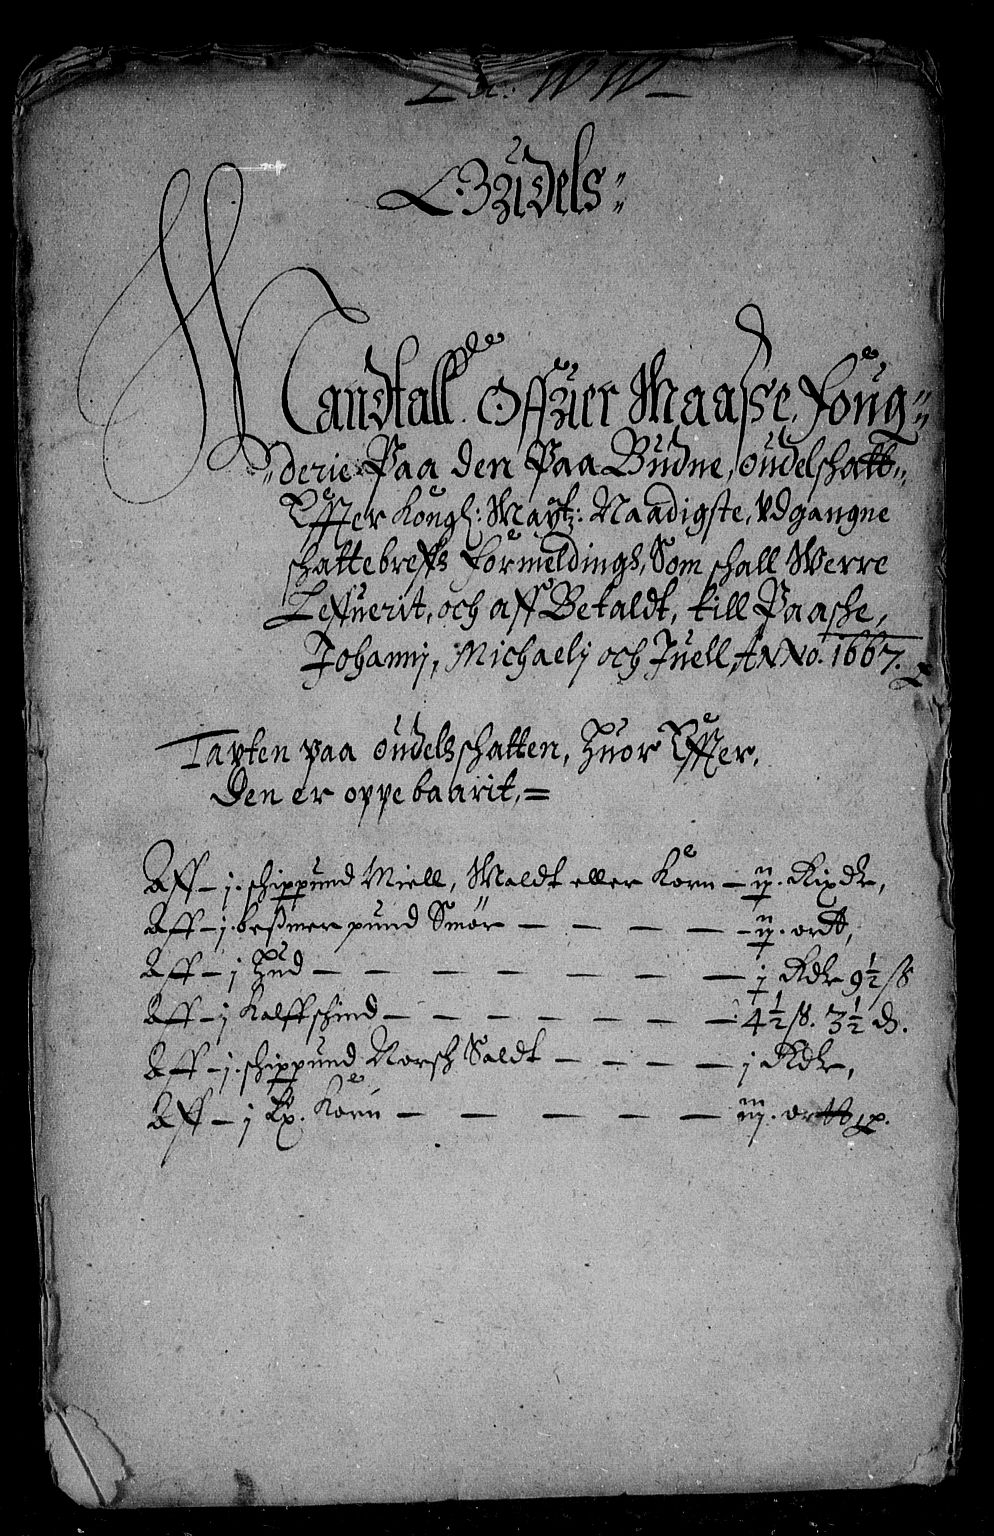 Lit: WW
Oudels
Mandtall Offuer Maasse foug=
derie Paa den Paa Budne, oudelschatt,
Effter Kongl: Maytz: Naadigste, Vdgangne
schattebreffs formeldings, Som schall Werre
Leffuerit, och aff Betaldt, till Paasche,
Johannj, Michaelj och Juell, ANNo. 1667.
Taxten paa oudelsschatten, Huor Effter,
Den er oppebaarit,=
Aff - j. schippund Miell, Maldt eller Korn - ij. Rixdr,
Aff - j. beßmer pund Smör - - - - ij. ordt,
Aff - j Hud - - - - - - - j Rdr 9½ ß
Aff - j Kalffschind - - - - - - 4½ ß. 3½ d.
Aff - j. schippund Norsch Saldt - - - - j Rdr,
Aff - j Lp. Korn - - - - - iij. ortt